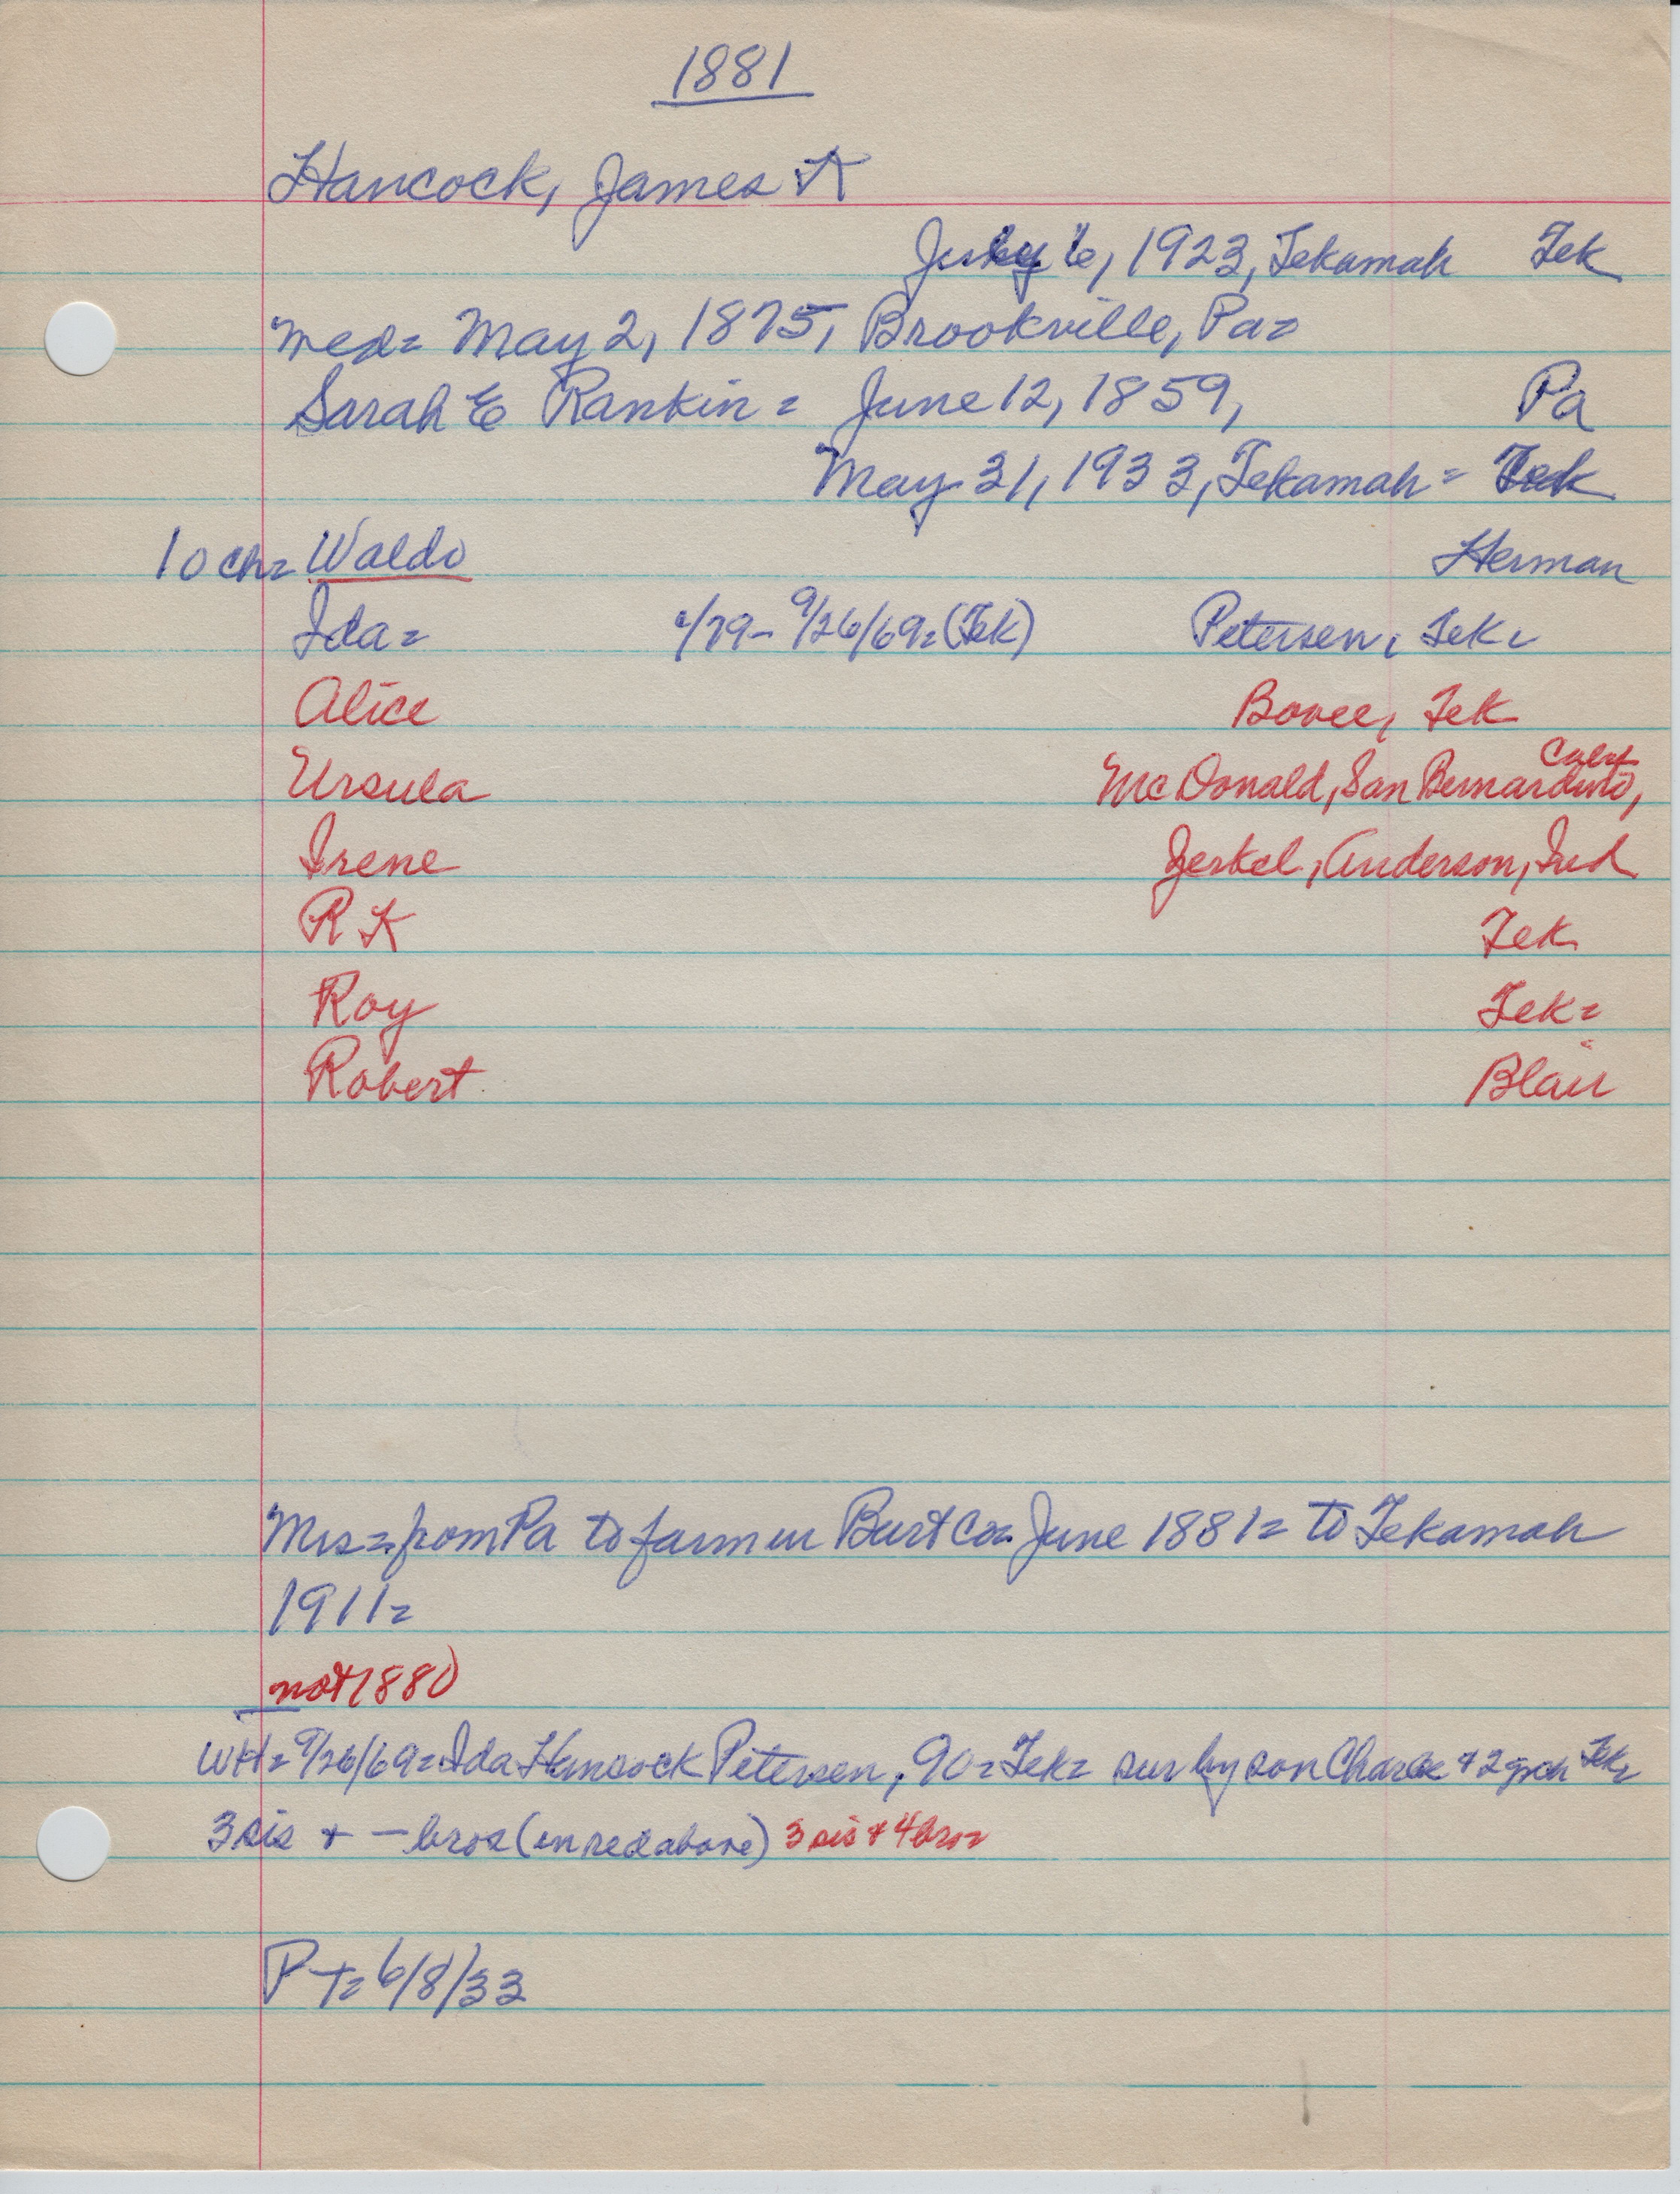 1881
Hancock, James K
July 6, 1923, Tekamah Tek
med= May 2, 1875, Brookville, Pa=
Sarah E Rankin = June 12, 1859, Pa
May 31, 1933, Tekamah = Tek
10 ch= Waldo Herman
Ida= /79- 9/26/69=(Tek) Petersen, Tek=
Alice Bovee, Tek
Calif
Ursula McDonald, San Bernardino,
Irene Anderson, Ind
R K Tek
Roy Tek=
Robert Blair
Mrs= from Pa to farm in Burt Co= June 1881= to Tekamah
1911=
not 1880
WH= 9/26/69= Ida Hancock Petersen, 90= Tek= sur by son Charles + 2 gch Tek=
3 sis + - bros (in red above) 3 sis + 4 bro=
PT= 6/8/33